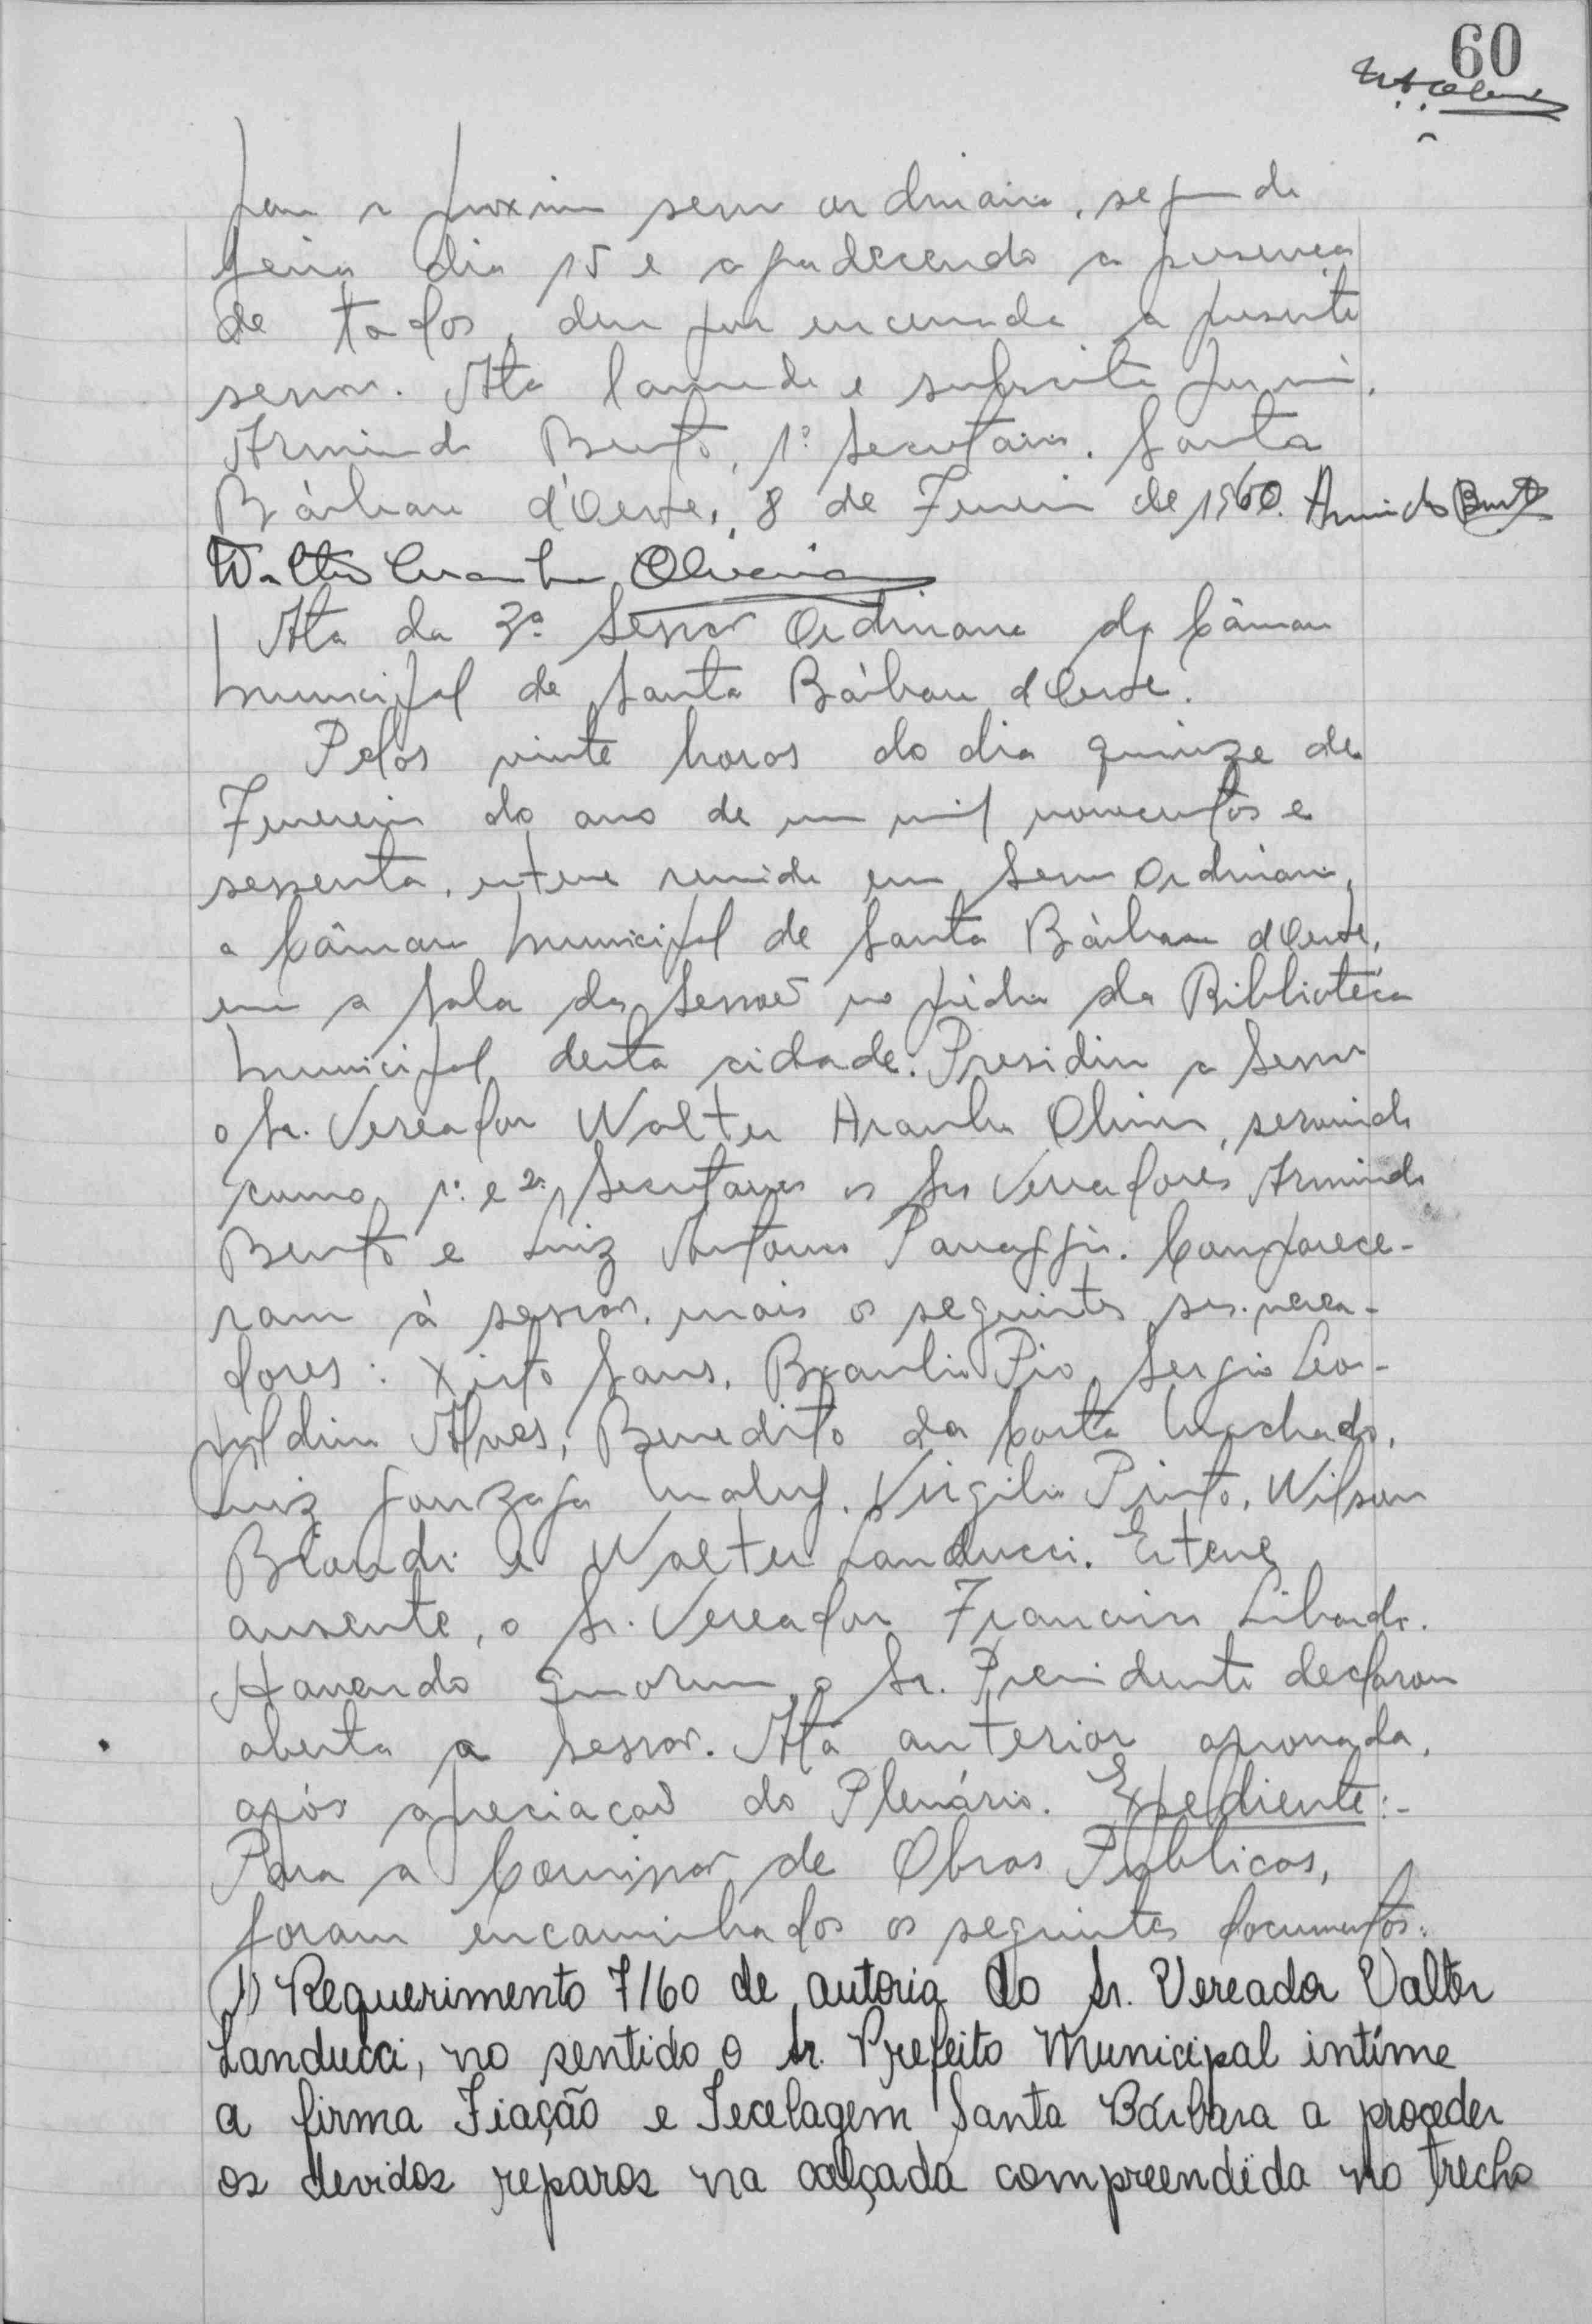 60
para a proxima sessão ordinaria, segunda
feira dia 15 e agradecendo a presença
de todos, deu por encerrada a presente
sessão. Ata lavrada e subscrita por mim,
Armindo Bento, 1º Secretario. Santa
Bárbara d'Oeste, 8 de Fevereiro de 1960. Armindo Bento
Walter Aranha Oliveira
Ata da 3ª Sessão Ordinaria da Câmara
Municipal de Santa Bárbara d'Oeste.
Pelas vinte horas do dia quinze de
Fevereiro do ano de um mil novecentos e
sessenta, esteve reunida em Sessão Ordinária,
a Câmara Municipal de Santa Bárbara d'Oeste,
em a Sala das Sessões no prédio da Biblioteca
Municipal desta cidade. Presidiu a Sessão
o Sr. Vereador Walter Aranha Oliveira, servindo
como 1º e 2º Secretarios os Srs Vereadores Armindo
Bento e Luiz Antonio Panaggio. Comparece-
ram à sessão, mais os seguintes srs. verea-
dores: Xisto Sans, Braulio Pio, Sergio Leo-
poldino Alves, Benedito da Costa Machado,
Luiz Gonzaga Maluf, Virgilio Pinto, Wilson
Biondi e Walter Landucci. Esteve
ausente, o Sr. Vereador Francisco Libardi.
Havendo quorum o Sr. Presidente declarou
aberta a sessão. Ata anterior aprovada,
após apreciação do Plenário. Expediente:-
Para a Comissão de Obras Publicas,
foram encaminhados os seguintes documentos:
1) Requerimento 7/60 de autoria do Sr. Vereador Valter
Landucci, no sentido o Sr. Prefeito Municipal intíme
a firma Fiação e Tecelagem Santa Bárbara a proceder
os devidos reparos na calçada compreendida no trecho